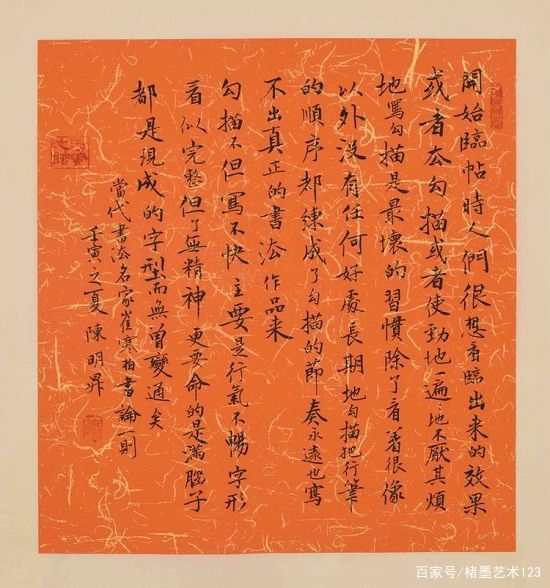 開始臨帖時人們很想看臨出来的效果
或者去勾描或者使勁地一遍遍地不厭其煩
地寫勾描是最壞的習慣除了看著很像
以外沒有任何好處長期地勾描把行筆
的順序都練成了勾描的節奏永遠也寫
不出真正的書法作品来
勾描不但寫不快主要是行氣不暢字形
看似完整但了無精神更要命的是滿腦子
都是現成的字型而無曾變通矣
當代書法名家崔寒柏書論一則
壬寅之夏陳明昇
百家号/楮墨艺术123